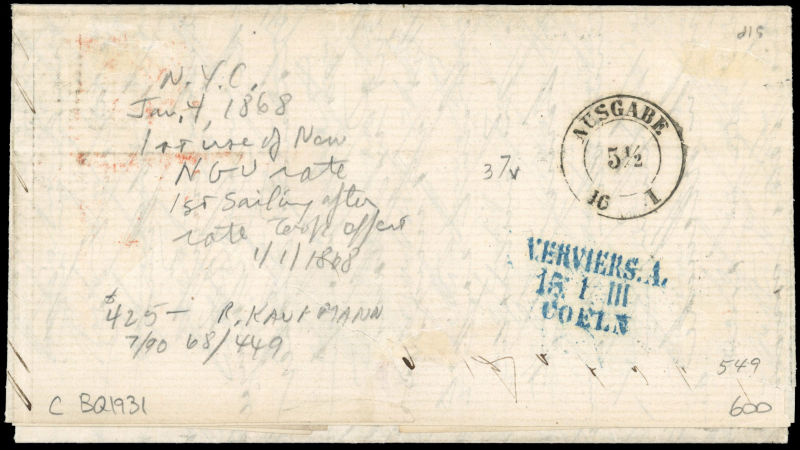 d15
N.Y.C.
Jan, 4, 1868
1st use of New
NGU rate
1st Sailing after
rate took effect
1/1/1868
37
AUSGABE
5½
16 I
VERVIERS.A.
15 1 III
COELN
$425- R. KAUFMANN
7/90 68/449
549
C BQ1931
600